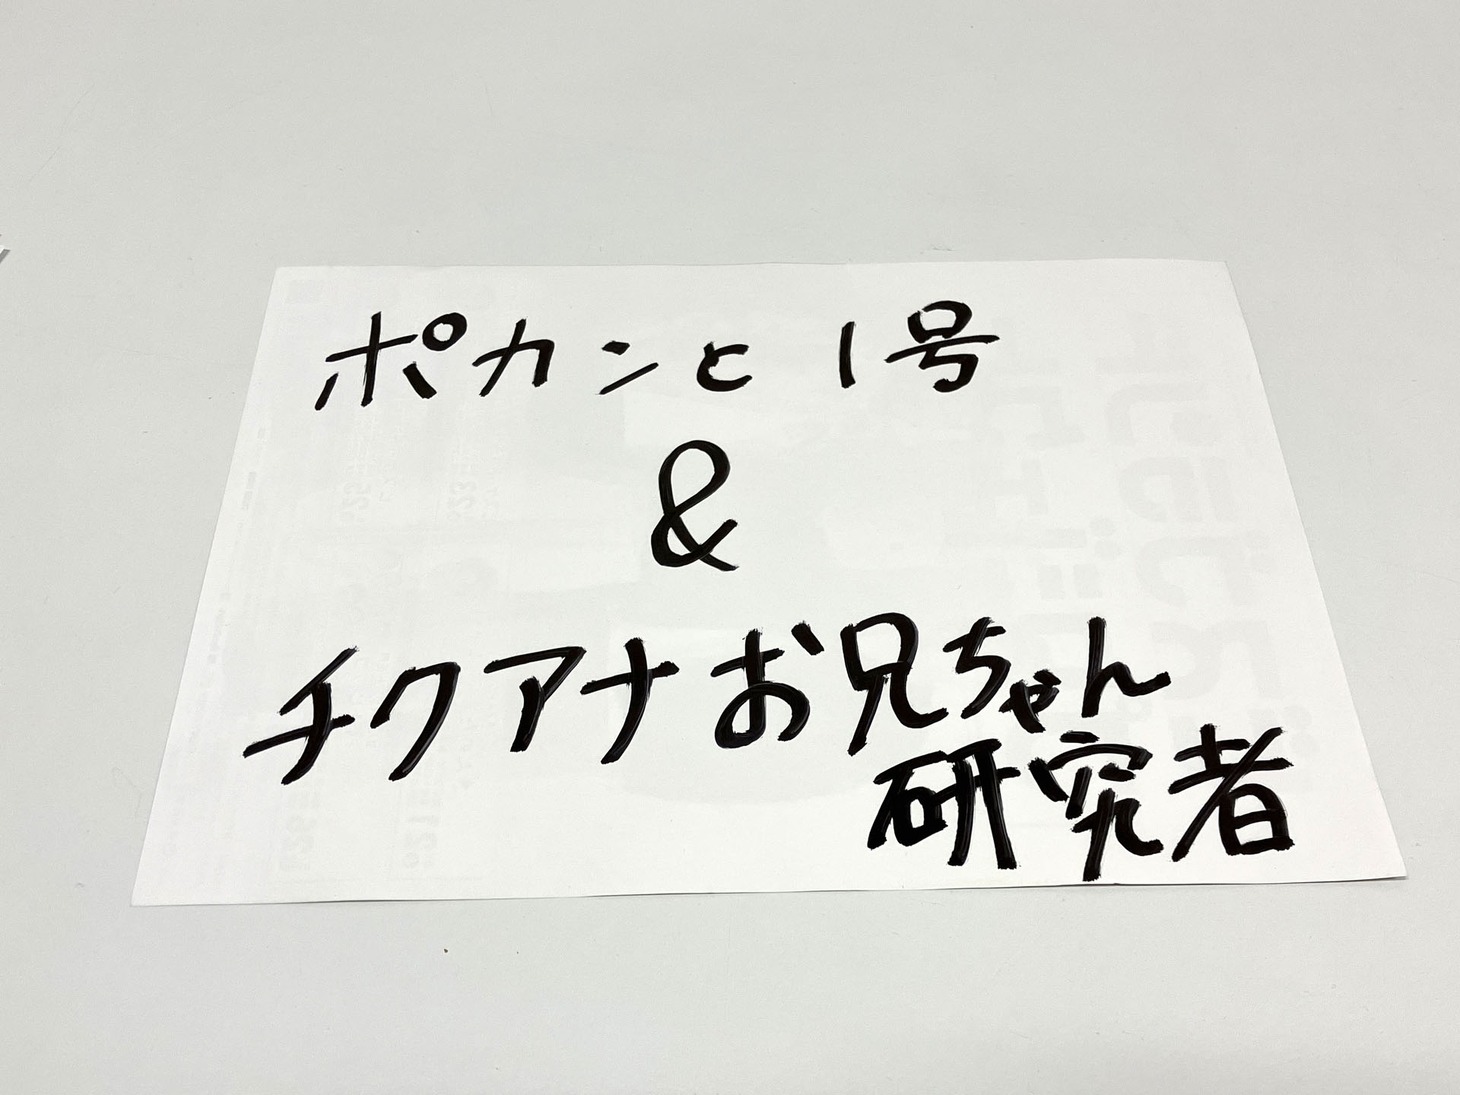 ポカンと1号
&
チクアナお兄ちゃん
研究者